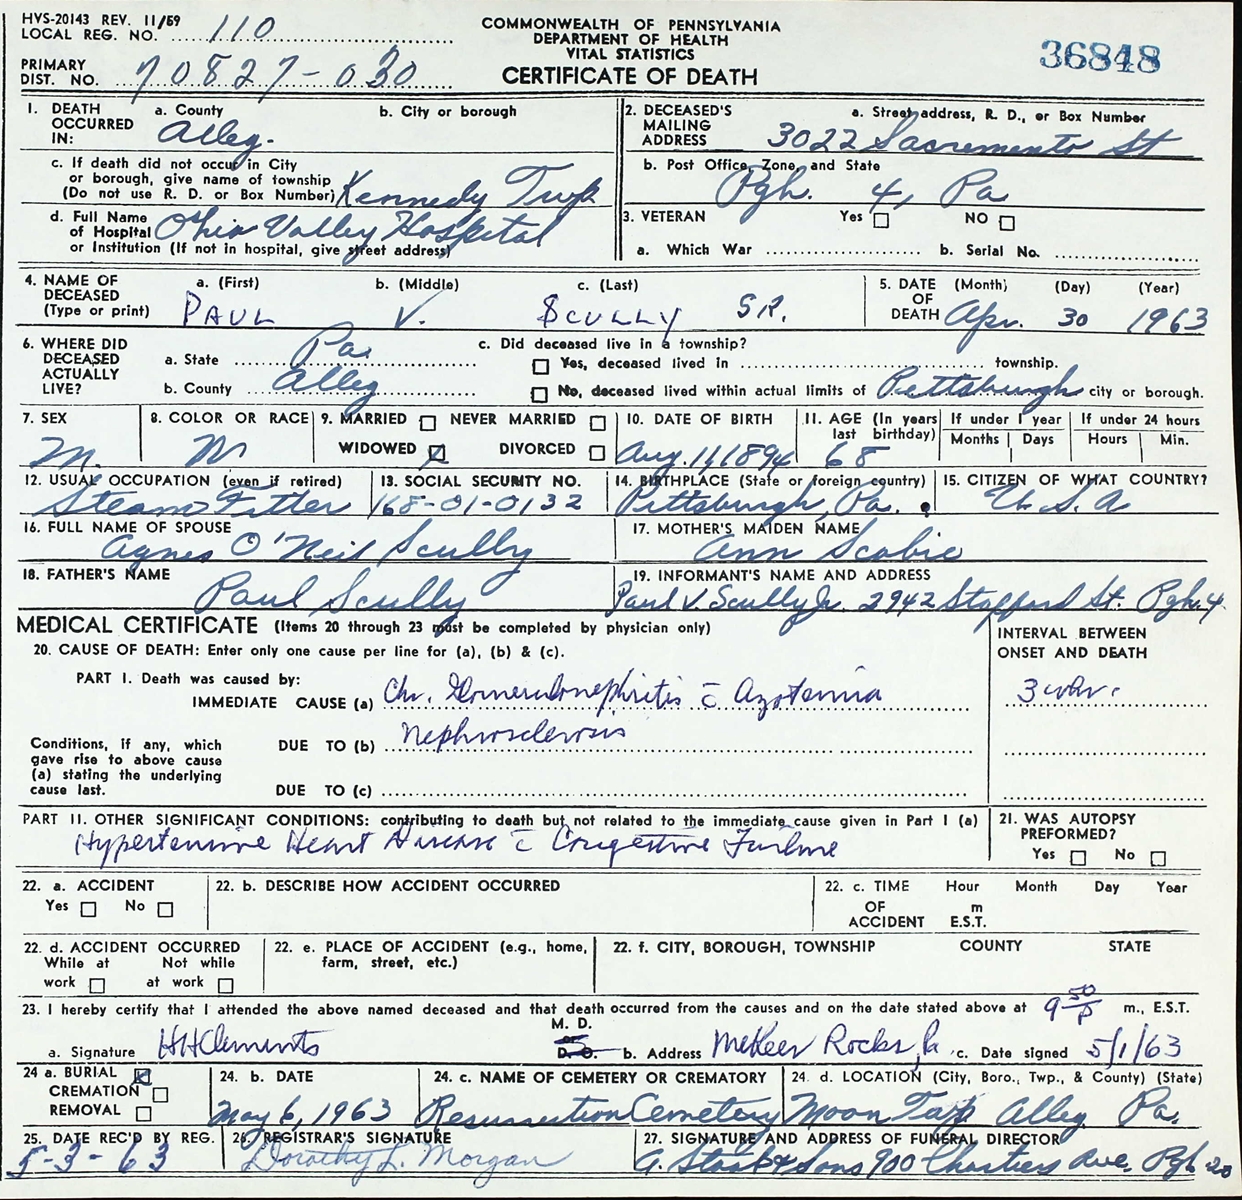 HVS-20143 REV. 11/59
LOCAL REG. NO. 110
PRIMARY DIST. NO. 70827-030
COMMONWEALTH OF PENNSYLVANIA
DEPARTMENT OF HEALTH
VITAL STATISTICS
CERTIFICATE OF DEATH
36848
1. DEATH OCCURRED IN: a. County Alleg. b. City or borough
c. If death did not occur in City or borough, give name of township (Do not use R. D. or Box Number) Kennedy Twp
d. Full Name of Hospital or Institution (If not in hospital, give street address) Ohio Valley Hospital
2. DECEASED'S MAILING ADDRESS a. Street address, R. D., or Box Number 3022 Sacremento St
b. Post Office, Zone, and State Pgh. 4, Pa
3. VETERAN Yes ☐ NO ☐
a. Which War b. Serial No.
4. NAME OF DECEASED (Type or print) a. (First) PAUL b. (Middle) V. c. (Last) SCULLY SR.
5. DATE OF DEATH (Month) Apr. (Day) 30 (Year) 1963
6. WHERE DID DECEASED ACTUALLY LIVE? a. State Pa.
b. County Alleg
c. Did deceased live in a township?
☐ Yes, deceased lived in township.
☐ No, deceased lived within actual limits of Pittsburgh city or borough.
7. SEX M.
8. COLOR OR RACE W
9. MARRIED ☐ NEVER MARRIED ☐
WIDOWED ☒ DIVORCED ☐
10. DATE OF BIRTH Aug. 11, 1894
11. AGE (In years last birthday) 68
If under 1 year Months Days
If under 24 hours Hours Min.
12. USUAL OCCUPATION (even if retired) Steam Fitter
13. SOCIAL SECURITY NO. 168-01-0132
14. BIRTHPLACE (State or foreign country) Pittsburgh, Pa.
15. CITIZEN OF WHAT COUNTRY? U.S.A
16. FULL NAME OF SPOUSE Agnes O'Neil Scully
17. MOTHER'S MAIDEN NAME Ann Scobie
18. FATHER'S NAME Paul Scully
19. INFORMANT'S NAME AND ADDRESS Paul V. Scully Jr. 2942 Stafford St. Pgh. 4
MEDICAL CERTIFICATE (Items 20 through 23 must be completed by physician only)
INTERVAL BETWEEN ONSET AND DEATH
20. CAUSE OF DEATH: Enter only one cause per line for (a), (b) & (c).
PART I. Death was caused by:
IMMEDIATE CAUSE (a) Chr. Glomerulonephritis c̄ Azotemia
Conditions, if any, which gave rise to above cause (a) stating the underlying cause last.
DUE TO (b) Nephrosclerosis
DUE TO (c)
PART II. OTHER SIGNIFICANT CONDITIONS: contributing to death but not related to the immediate cause given in Part I (a)
Hypertensive Heart Disease c̄ Congestive Failure
21. WAS AUTOPSY PREFORMED?
Yes ☐ No ☐
22. a. ACCIDENT Yes ☐ No ☐
22. b. DESCRIBE HOW ACCIDENT OCCURRED
22. c. TIME OF ACCIDENT Hour m E.S.T. Month Day Year
22. d. ACCIDENT OCCURRED While at work ☐ Not while at work ☐
22. e. PLACE OF ACCIDENT (e.g., home, farm, street, etc.)
22. f. CITY, BOROUGH, TOWNSHIP COUNTY STATE
23. I hereby certify that I attended the above named deceased and that death occurred from the causes and on the date stated above at 9 50 P m., E.S.T.
a. Signature HHClements M. D. or D. O. b. Address McKees Rocks, Pa c. Date signed 5/1/63
24 a. BURIAL ☒
CREMATION ☐
REMOVAL ☐
24. b. DATE May 6, 1963
24. c. NAME OF CEMETERY OR CREMATORY Resurrection Cemetery
24. d. LOCATION (City, Boro., Twp., & County) (State) Moon Twp Alleg Pa.
25. DATE REC'D BY REG. 5-3-63
26. REGISTRAR'S SIGNATURE Dorothy L. Morgan
27. SIGNATURE AND ADDRESS OF FUNERAL DIRECTOR & Sons 900 Chartiers Ave. Pgh 20